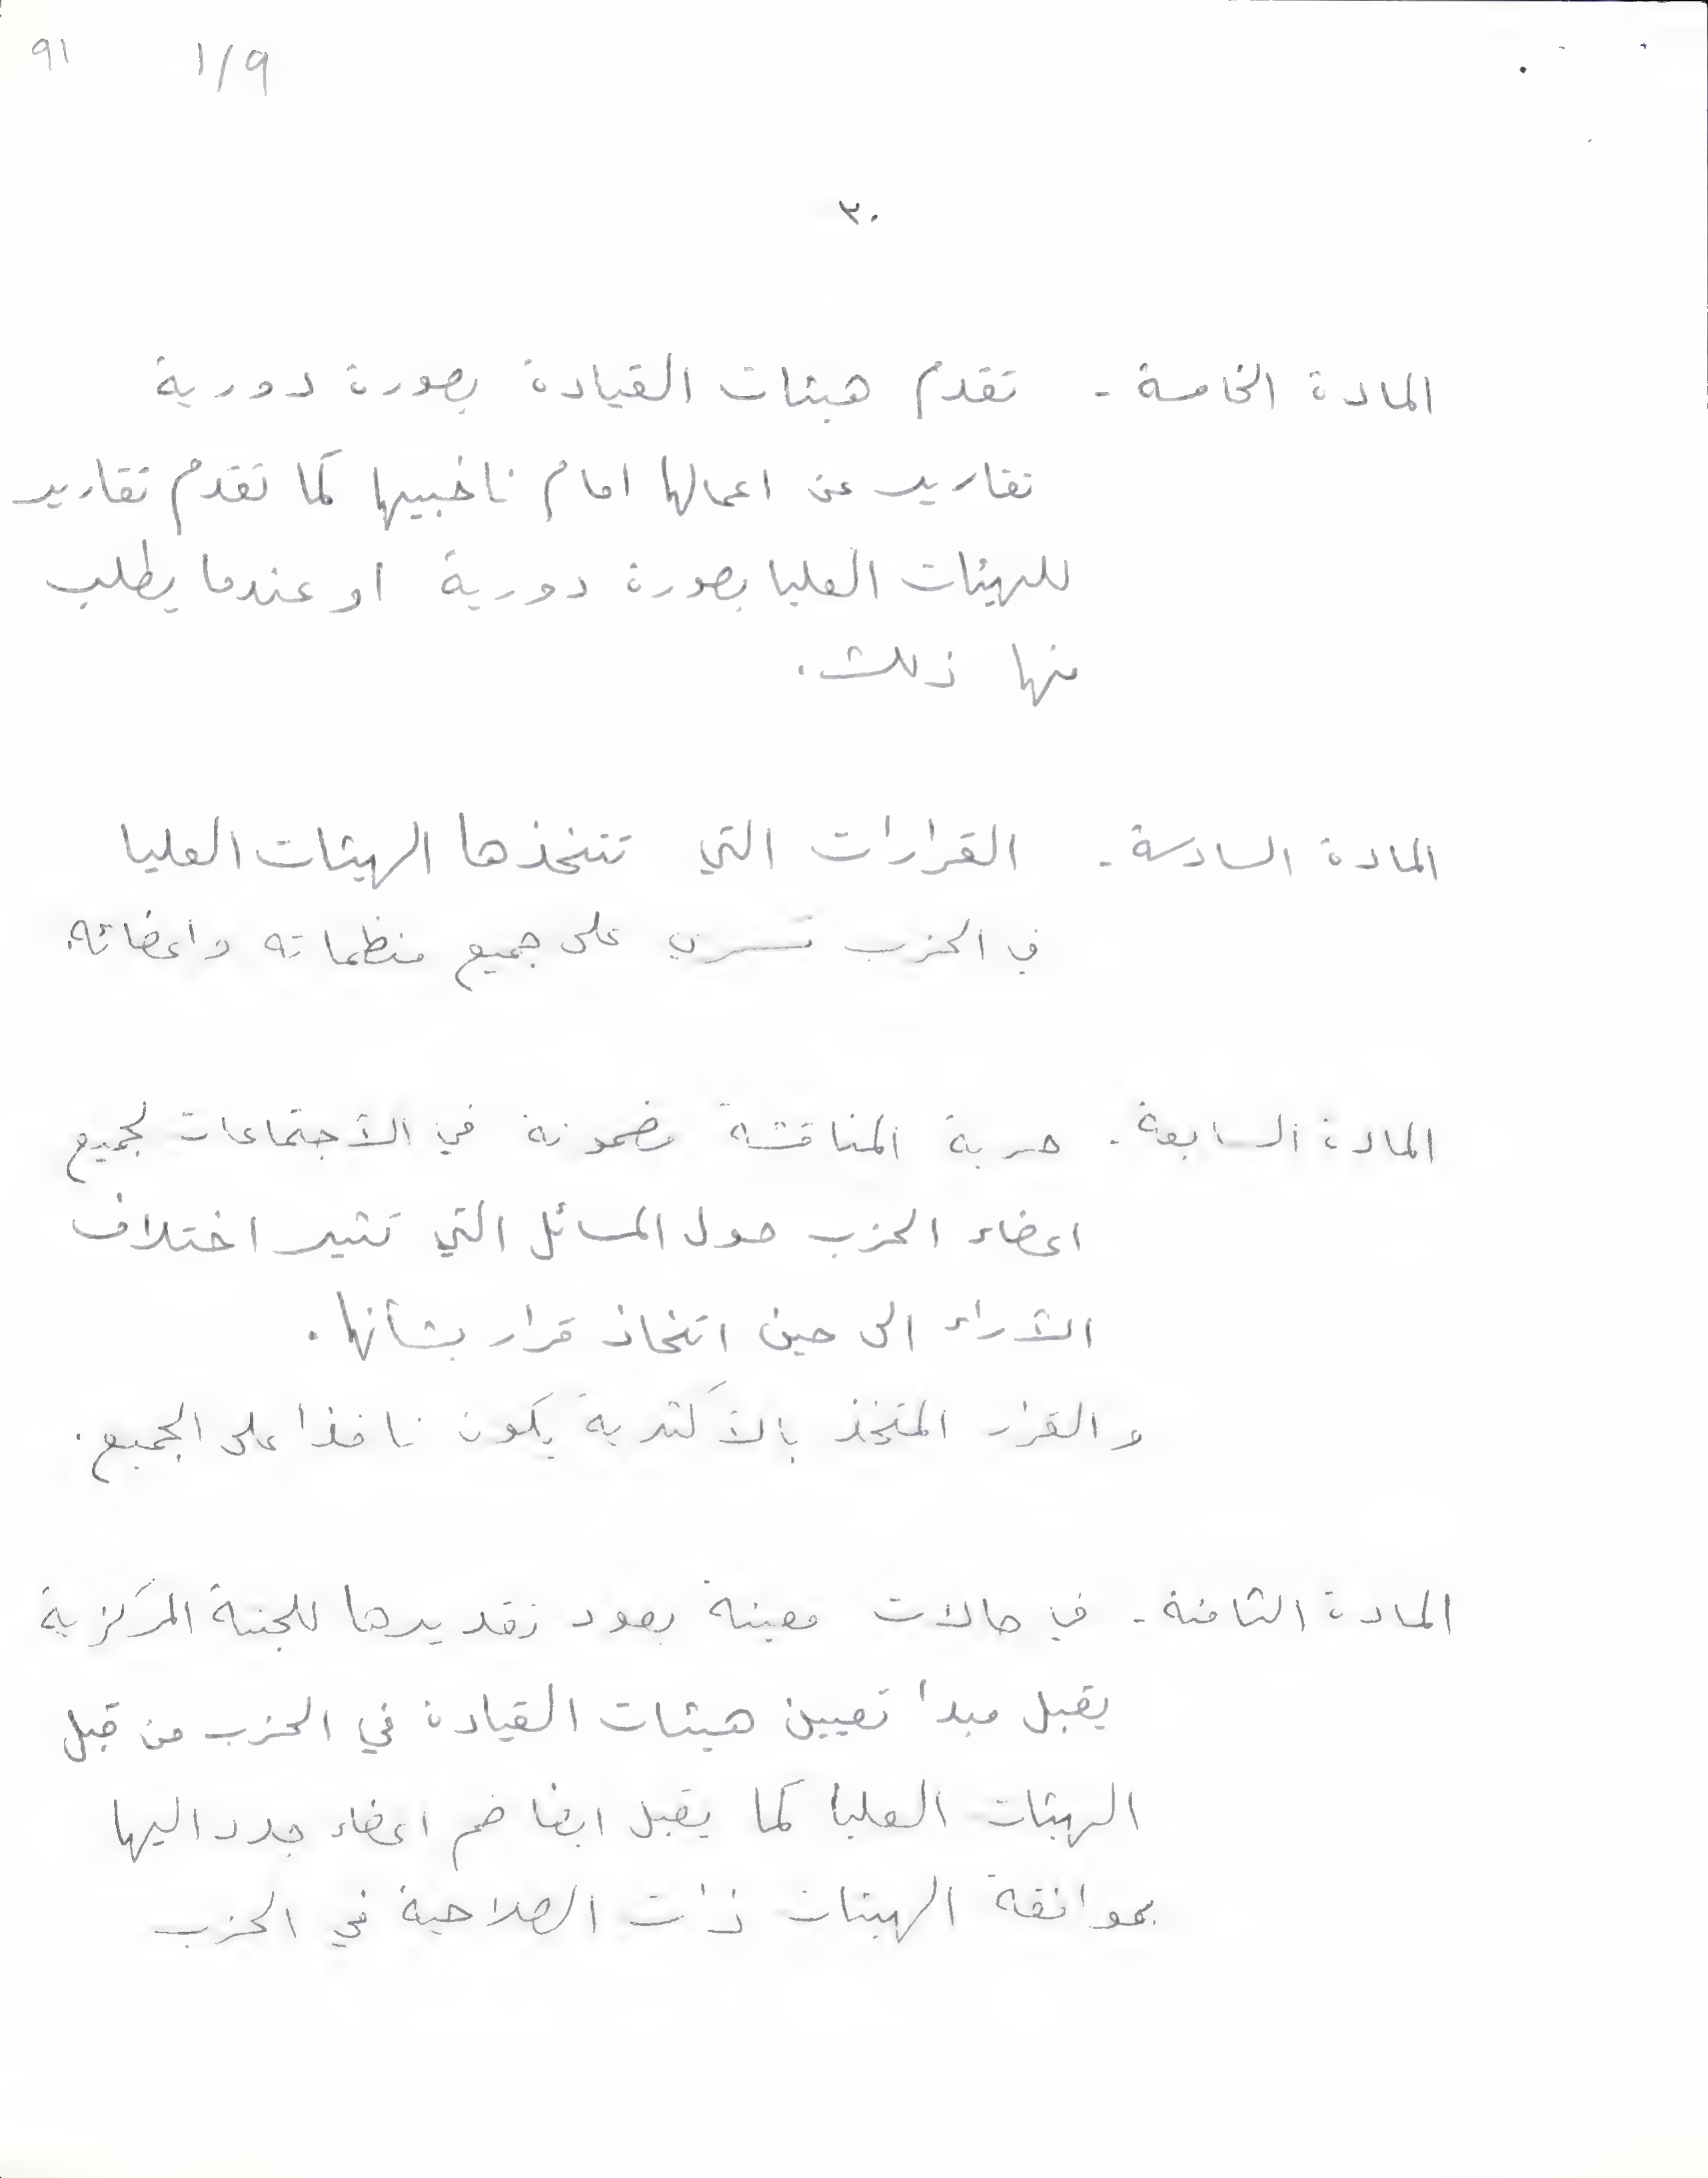 91 1/9
٢٠
المادة الخامسة - تقدم هيئات القيادة بصورة دورية
تقارير عن اعمالها امام ناخبيها كما تقدم تقارير
للهيئات العليا بصورة دورية او عندما يطلب
منها ذلك.
المادة السادسة - القرارات التي تتخذها الهيئات العليا
في الحزب تسري على جميع منظماته واعضائه.
المادة السابعة - حرية المناقشة مضمونة في الاجتماعات لجميع
اعضاء الحزب حول المسائل التي تثير اختلاف
الآراء الى حين اتخاذ قرار بشأنها.
والقرار المتخذ بالأكثرية يكون نافذا على الجميع.
المادة الثامنة - في حالات معينة يعود تقديرها للجنة المركزية
يقبل مبدأ تعيين هيئات القيادة في الحزب من قبل
الهيئات العليا كما يقبل ايضا ضم اعضاء جدد اليها
بموافقة الهيئات ذات الصلاحية في الحزب